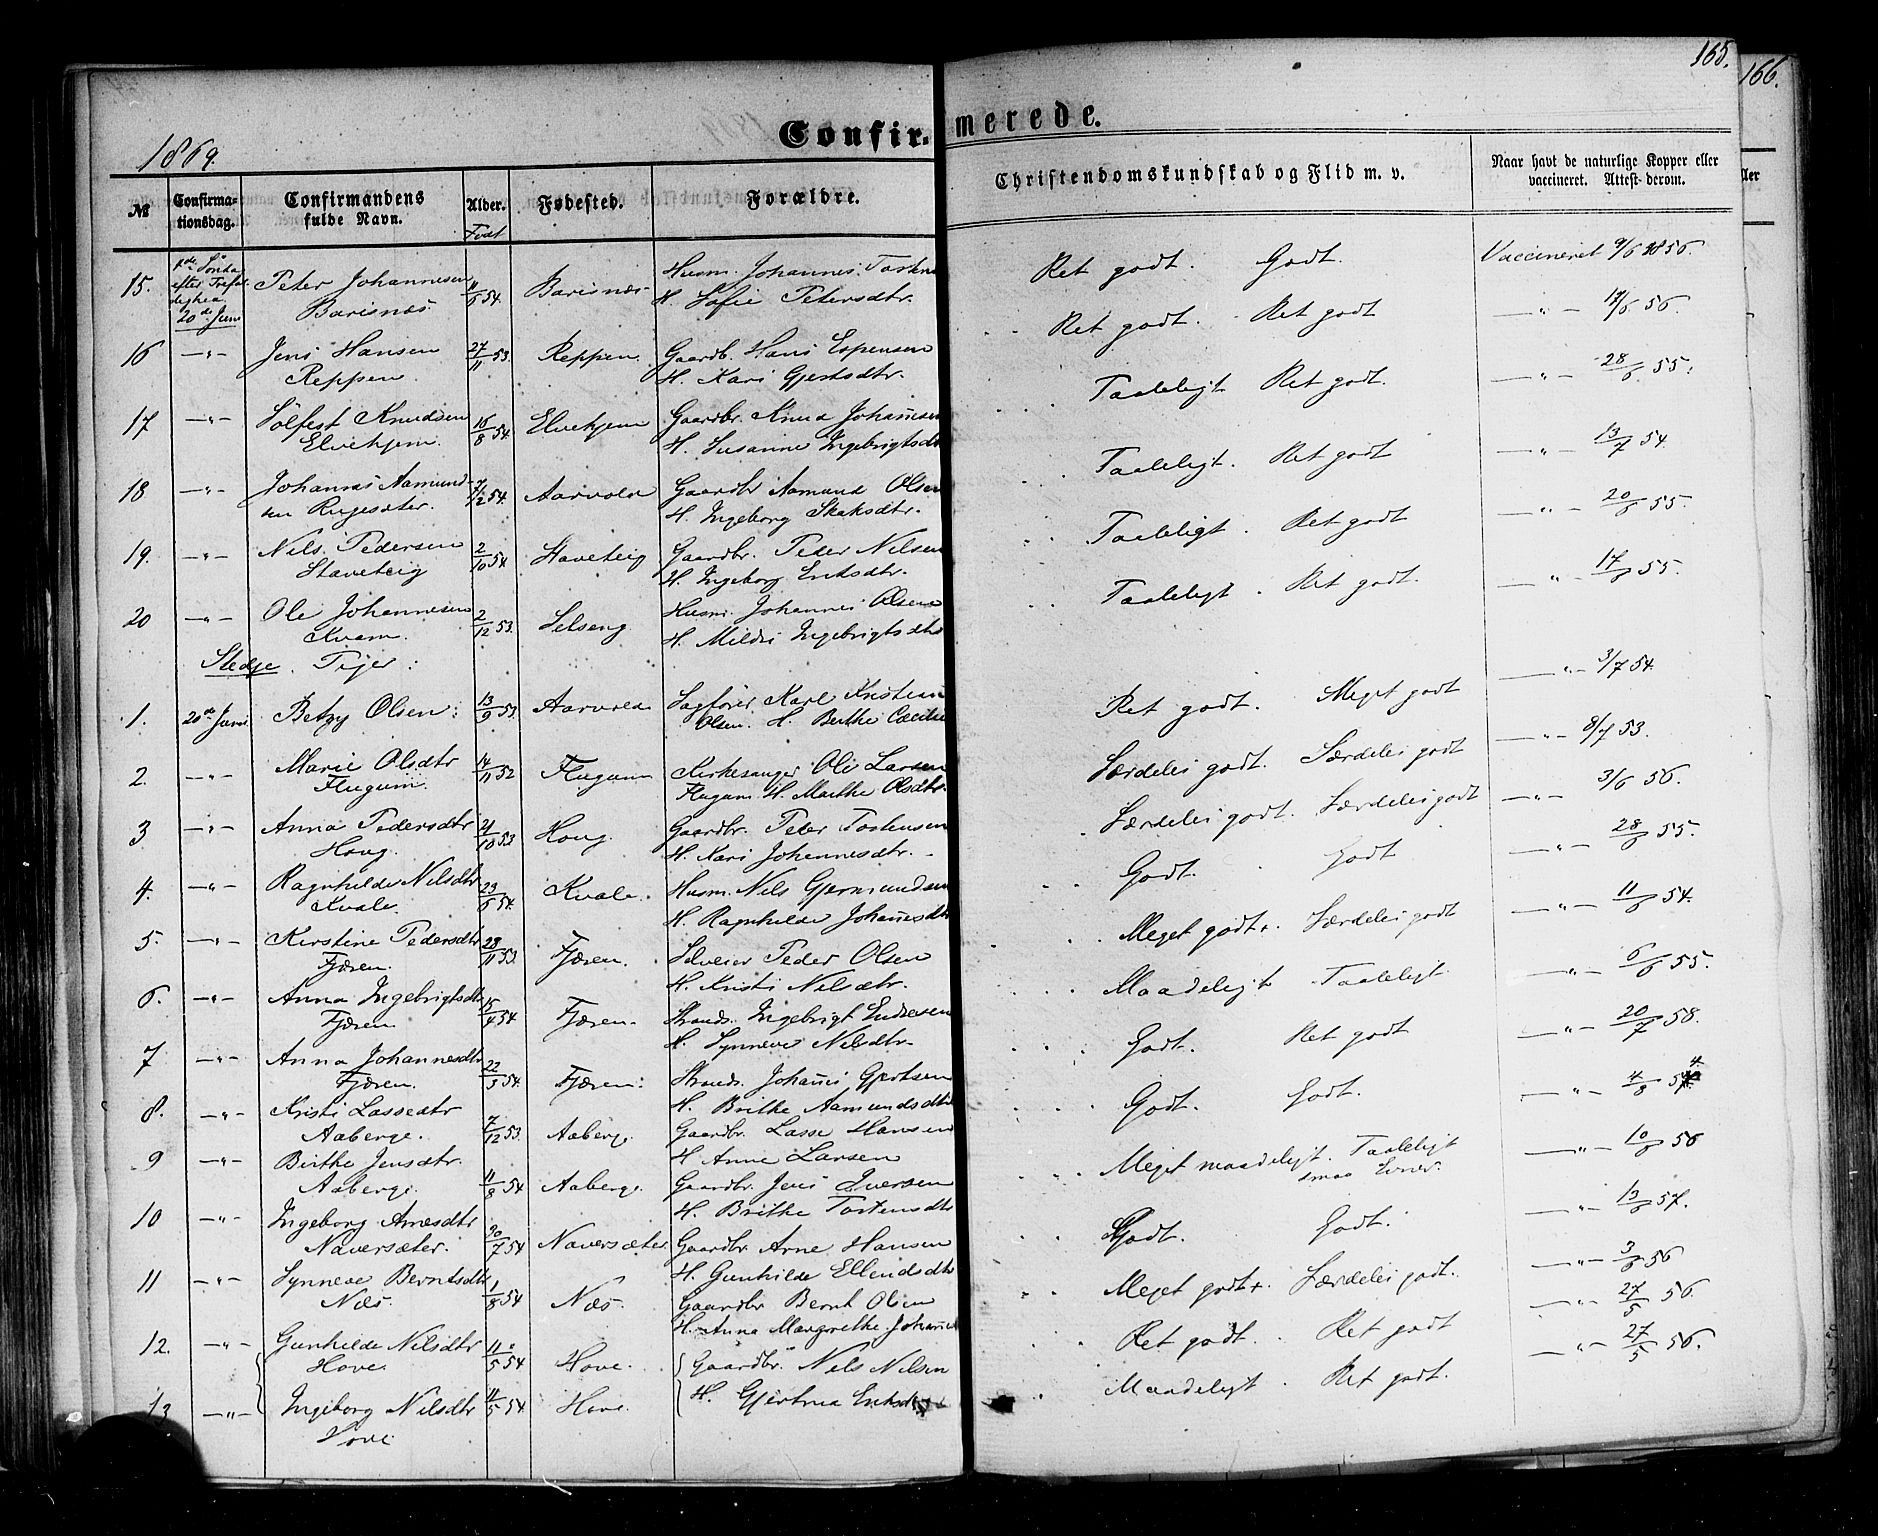 165.
166.
1869.
Confirmerede.
№
Confirmationsdag.
Confirmandens fulde Navn.
Alder.
Født
Fødested.
Forældre.
Christendomskundskab og Flid m. v.
Naar havt de naturlige Kopper eller vaccineret. Attest derom.
15. efter 20de Juni Peter Johannesen 11/6 54. Barisnæs Husm. Johannes Ret godt. Godt. Vaccineret 9/6 1856.
Barisnæs H. Sofie Petersdtr.
16 —"— Jens Hansen 27/11 53. Reppen Gaardb. Hans Espensen Ret godt. Ret godt —"— 56.
Reppen H. Kari Gjertsdtr.
17 —"— Sølfest Knudsen 16/8 54. Elvekjem Gaardbr. Knud Johannesen Taaleligt Ret godt. —"— 28/6 55.
Elvekjem. H. Susanne Ingebrigtsdtr
18 —"— Johannes Aamund- 54. Aarvold Gaardbr Aamund Olsen Taaleligt. Ret godt —"— 13/7 54.
sen Rugesæter. H. Ingeborg Skaksdtr.
19. —"— Nils Pedersen 2/10 54 Staveteig Gaardbr. Peder Nilsen Taaleligt. Ret godt —"— 20/6 55.
Staveteig H. Ingeborg Eriksdtr.
20 —"— Ole Johannesen 2/12 53. Selseng Husm. Johannes Olsen Taaleligt. Ret godt. —"— 17/6 55.
Kvam. H. Mildri Ingebrigtsdtr
Stedje. Piger:
1. 20de Juni Betzy Olsen 13/9 53. Aarvold Sagfører Karl Kristian Ret godt. Meget godt —"— 3/7 54.
Olsen. H. Berthe Cecilie
2. —"— Marie Olsdtr 14/11 52 Flugum Kirkesanger Ole Larsen Særdeles godt. Særdeles godt —"— 8/7 53.
Flugum. Flugum. H. Marthe Olsdtr.
3 —"— Anna Pedersdtr 21/10 53 Houg. Gaardbr. Peder Torstensen Særdeles godt. Særdeles godt —"— 3/6 56.
Houg. H. Kari Johannesdtr.
4. —"— Ragnhilde Nilsdtr 23/6 54. Kvale. Husm. Nils Gjermundsen Godt. Godt —"— 28/6 55.
Kvale. H. Ragnhilde Johannesdtr
5. —"— Kirstine Pedersdtr 28/11 53. Fjæren. Selveier Peder Olsen Meget godt+. Særdeles godt —"— 11/6 54.
Fjæren. H. Kristi Nilsdtr.
6. —"— Anna Ingebrigtsdtr 15/4 54 Fjæren. Strands. Ingebrigt Endresen Maadeligt Taaleligt —"— 6/6 55.
Fjæren H. Synneve Nilsdtr.
7 —"— Anna Johannesdtr 22/3 54. Fjæren. Strands. Johannes Gjertsen Godt. Ret godt —"— 20/7 58.
Fjæren. H. Brithe Aamundsdtr
8. —"— Kristi Lassedtr 7/12 53. Aaberge. Gaardbr. Lasse Hansen Godt. Godt. —"— 4/8 54.
Aaberge. H. Anne Larsen
9 —"— Birthe Jensdtr. 11/8 54 Aaberge. Gaardbr. Jens Iversen Meget maadeligt. Taaleligt —"— 10/6 56
Aaberge. H. Brithe Torstensdtr smaa Evner.
10 —"— Ingeborg Arnesdtr 30/7 54 Naversæter Gaardbr. Arne Hansen Godt. Godt. —"— 13/6 57.
Naversæter. H. Gunhilde Ellendsdtr
11 —"— Synneve Berntsdtr 1/8 54 Næs. Gaardbr Bernt Olsen Meget godt+. Særdeles godt. —"— 3/6 56
Næs. H. Anna Margrethe Johannes
12. —"— Gunhilde Nilsdtr 11/5 54 Hove. Gaardbr. Nils Nilsen Ret godt. Ret godt —"— 27/5 56.
Hove. H. Gjertrud Eriksdtr
13 —"— Ingeborg Nilsdtr 11/5 54 Hove. Maadeligt. Ret godt. —"— 27/5 56.
Hove